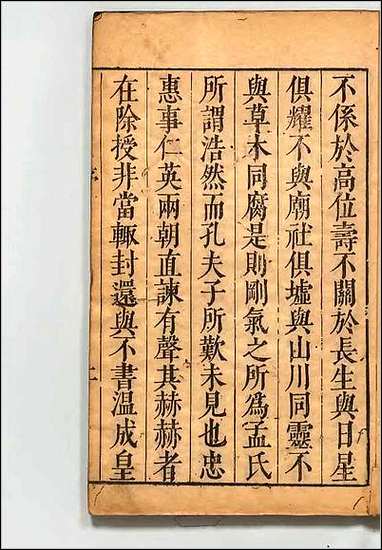 不係於高位壽不關於長生與日星
俱耀不與廟社俱墟與山川同靈不
與草木同腐是則剛氣之所為孟氏
所謂浩然而孔夫子所歎未見也忠
惠事仁英兩朝直諫有聲其赫赫者
在除授非當輙封還與不書溫成皇
序
二